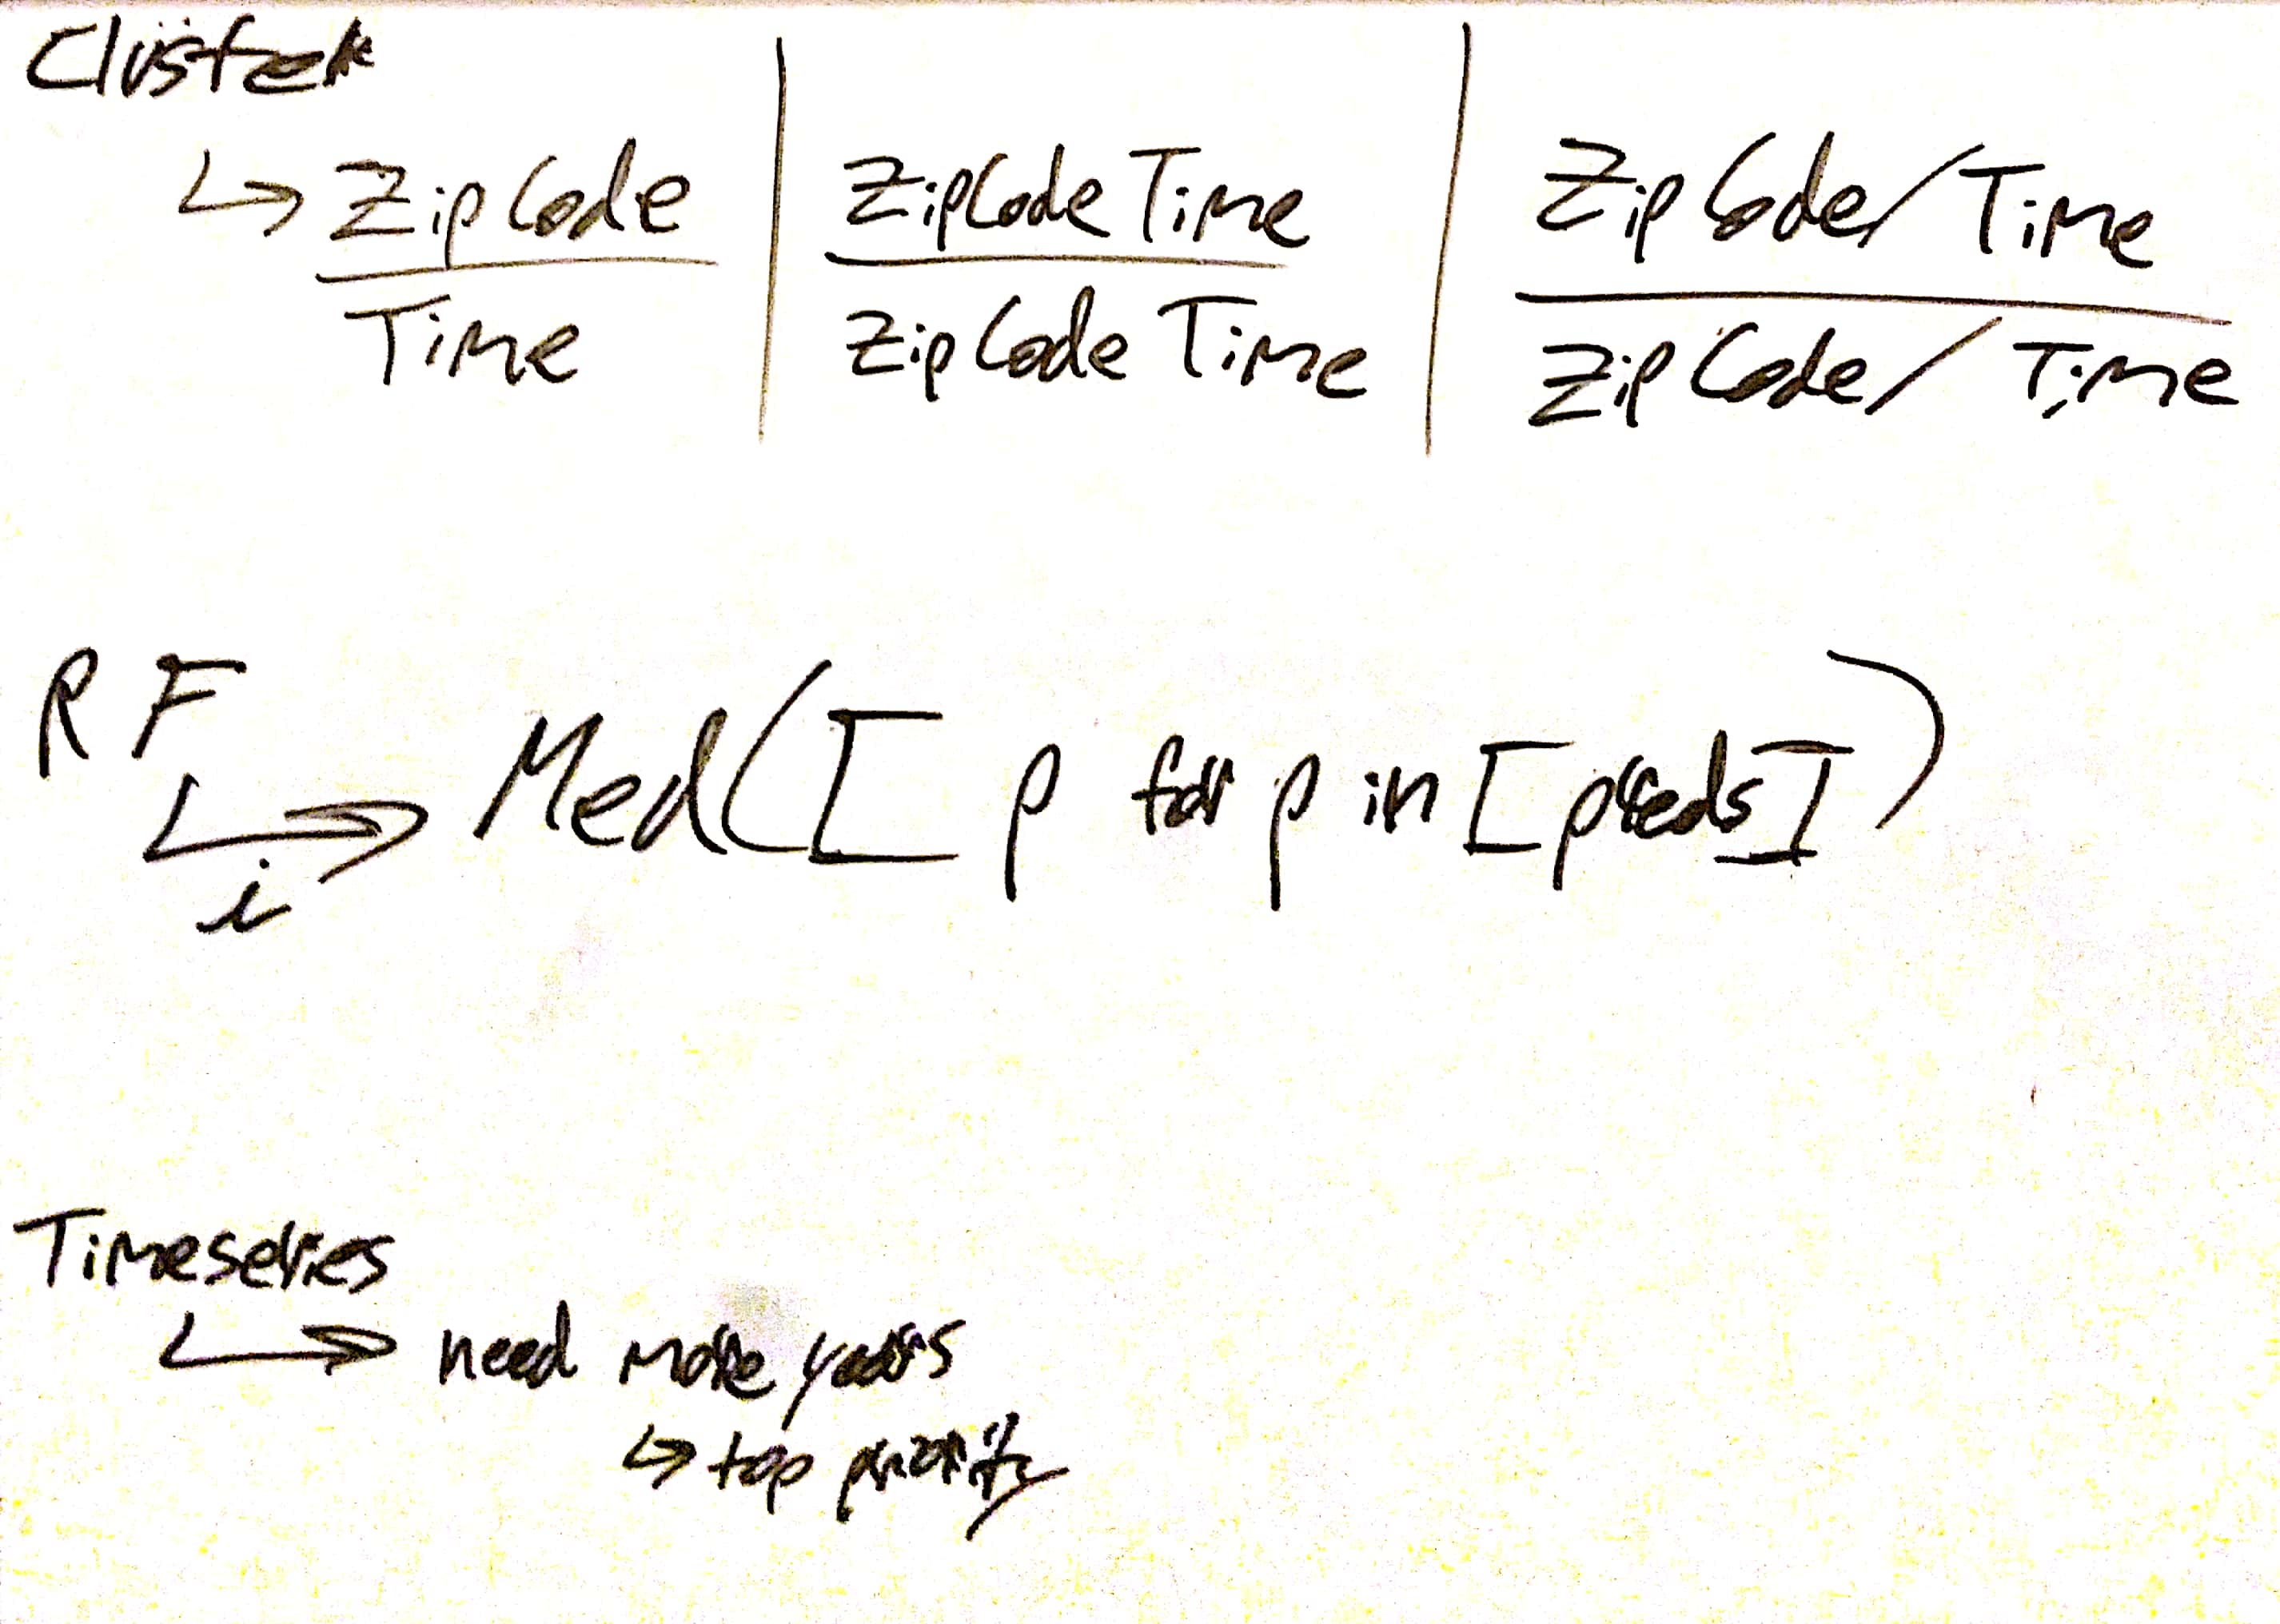 Cluster
↳ ZipCode | ZipCodeTime | ZipCode/Time
Time | ZipCodeTime | ZipCode/Time
RF
↳ Med([p for p in [preds])
i
Timeseries
↳ need more years
↳ top priority